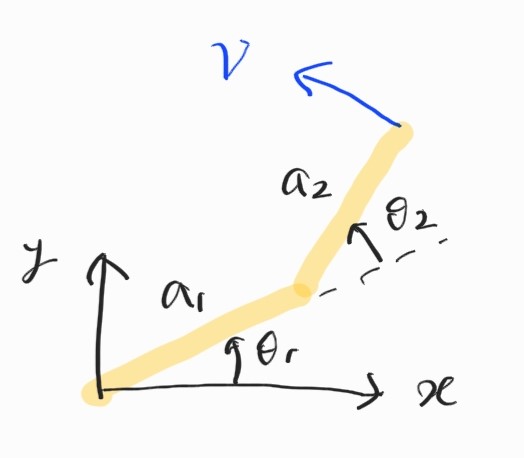 V
a₂
θ₂
y
a₁
θ₁
x